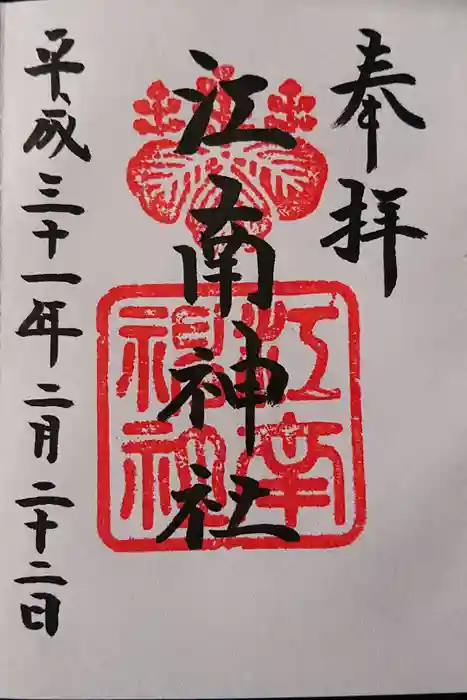 奉拝
江南神社
平成三十一年二月二十二日